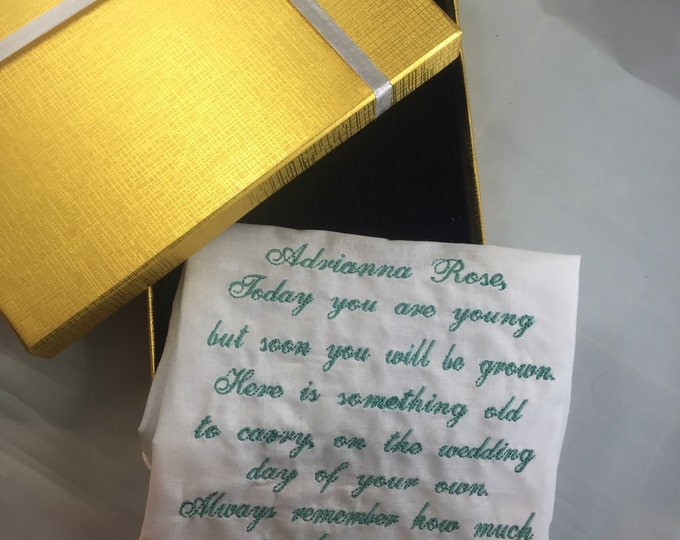 Adrianna Rose,
Today you are young
but soon you will be grown.
Here is something old
to carry, on the wedding
day of your own.
Always remember how much